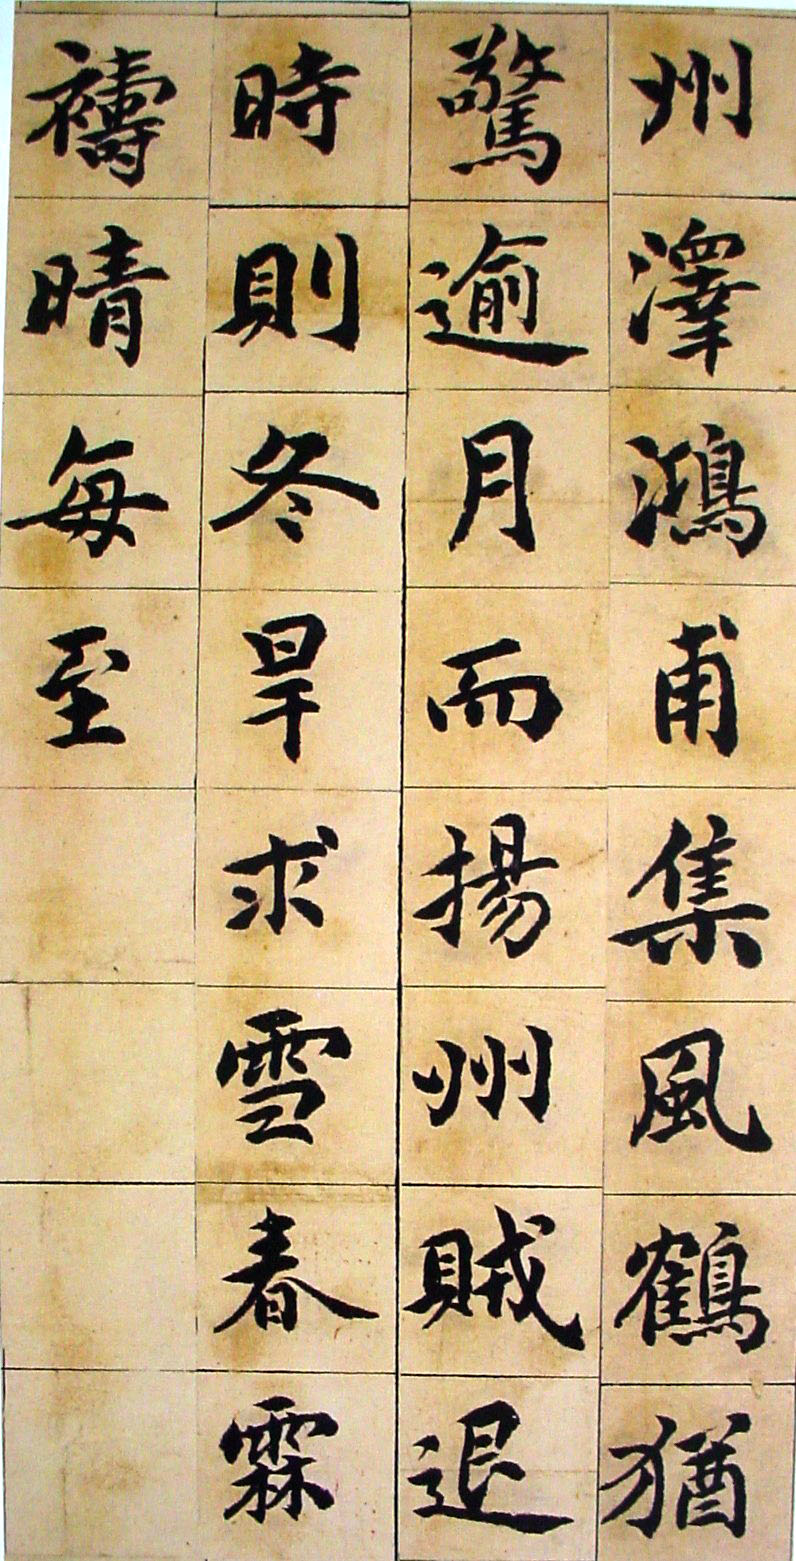 州澤鴻甫集風鶴猶
驚逾月而揚州賊退
時則冬旱求雪春霖
禱晴每至